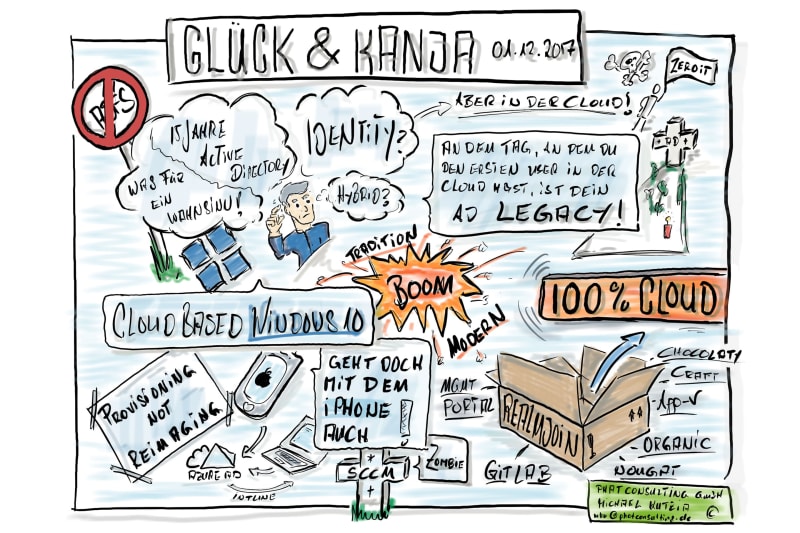 GLÜCK & KANJA 01.12.2017
ZEROIT
15 JAHRE
ACTIVE
DIRECTORY
WAS FÜR
EIN
WAHNSINN!
IDENTITY?
HYBRID?
ABER IN DER CLOUD!
AN DEM TAG, AN DEM DU
DEN ERSTEN USER IN DER
CLOUD HAST, IST DEIN
AD LEGACY!
TRADITION
BOOM
MODERN
100% CLOUD
CLOUD BASED WINDOWS 10
PROVISIONING
NOT
REIMAGING
GEHT DOCH
MIT DEM
IPHONE
AUCH!
AZURE AD
INTUNE
SCCM
ZOMBIE
MGMT
PORTAL
REALMJOIN!
GITLAB
CHOCOLATY
CRAFT
APP-V
ORGANIC
NOUGAT
PHATCONSULTING GMBH
MICHAEL
©